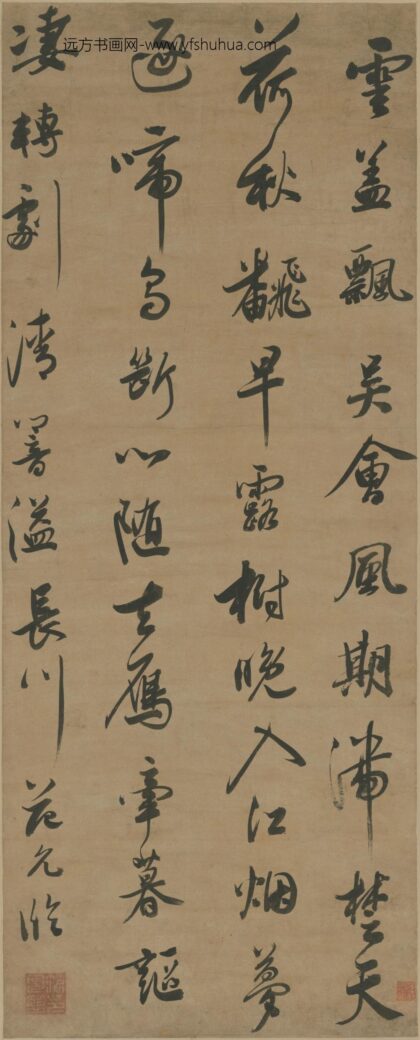 远方书画网-www.yfshuhua.com
雲蓋飄吳會風期滯楚天
荷秋飜早露樹晚入江烟夢
逐啼烏斷心隨去雁牽暮謳
凄轉劇清響溢長川范允臨